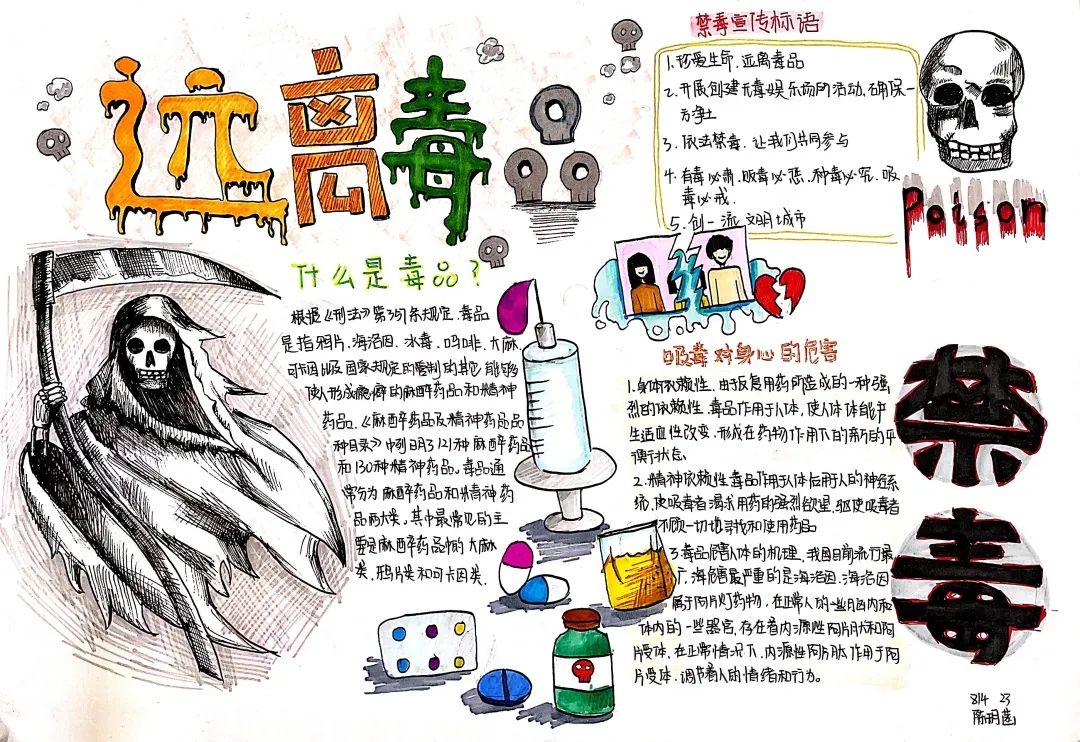 远离毒品
禁毒宣传标语
1.珍爱生命.远离毒品
2.开展创建无毒娱乐场所活动.确保一
方净土
3.依法禁毒.让我们共同参与
4.有毒必肃.贩毒必惩.种毒必究.吸
毒必戒.
5.创一流文明城市
Poison
什么是毒品?
根据《刑法》第357条规定.毒品
是指鸦片.海洛因.冰毒.吗啡.大麻.
可卡因以及国家规定的管制的其它能够
使人形成瘾癖的麻醉药品和精神
药品.《麻醉药品及精神药品品
种目录》中列明了121种麻醉药品
和130种精神药品。毒品通
常分为麻醉药品和精神药
品两大类。其中最常见的主
要是麻醉药品类的大麻
类.鸦片类和可卡因类.
吸毒对身心的危害
1.身体依赖性.由于反复用药所造成的一种强
烈的依赖性.毒品作用于人体,使人体体能产
生适应性改变.形成在药物作用下的新的平
衡状态。
2.精神依赖性.毒品作用人体后用人的神经系
统,使吸毒者渴求用药的强烈欲望.驱使吸毒者
不顾一切地寻找和使用药品
3.毒品危害人体的机理.我国目前流行最
广.海危害最严重的是海洛因,海洛因
属于阿片灯药物.在正常人的一些脑内和
体内的一些器官,存在着内源性阿片肽和阿
片受体.在正常情况下.内源性阿片肽作用于阿
片受体.调节着人的情绪和行为。
禁
毒
814 23